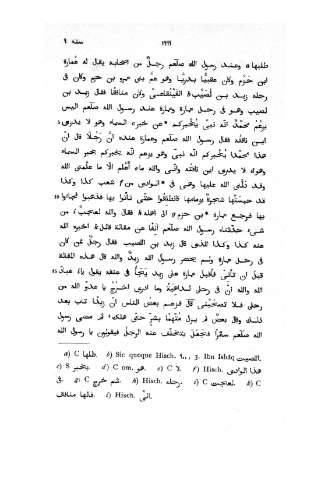 سنة ٩ ١٦٩٩
طلبها a) وعند رسول الله صلّعم رجل من اصحابه يقال له عمارة
ابن حزم وكان عقبيّا بدريّا وهو عمّ بنى عمرو بن حزم وكان فى
رحله زيد بن لصيب b) القينقاعىّ وكان منافقا فقال زيد بن
لصيب وهو فى رحل عمارة وعمارة عند رسول الله صلّعم اليس
يزعم محمّد انّه نبىّ يخبركم عن خبر السماء وهو لا يدرى
اين ناقته فقال رسول الله صلّعم وعمارة عنده انّ رجلا قال انّ
هذا محمّدا يخبركم انّه نبىّ وهو يزعم انّه يخبركم بخبر السماء
وهو لا يدرى اين ناقته وانّى والله ما اعلم الّا ما علّمنى الله
وقد دلّنى الله عليها وهى فى الوادى من f) شعب كذا وكذا
قد حبستها شجرة بزمامها فانطلقوا حتى تأتوا بها فذهبوا فجاءوا
بها فرجع عمارة بن حزم الى اهله فقال والله لعجب من
شىء حدّثناه رسول الله صلّعم آنفا عن مقالة قائل اخبره الله
عنه كذا وكذا للذى قال زيد بن اللصيب فقال رجل ممن كان
فى رحل عمارة ولم يحضر رسول الله زيد والله قال هذه المقالة
قبل ان تأتى فأقبل عمارة على زيد يَجَأُ فى عنقه يقول يا عباد
الله والله انّ فى رحلى لداهية وما ادرى اخرج يا عدوّ الله من
رحلى فلا تصحبنى قال فزعم بعض الناس انّ زيدا تاب بعد
ذلك وقال بعض لم يزل متّهما بشرّ حتى هلك ثم مضى رسول
الله صلّعم سائرا فجعل يتخلّف عنه الرجل فيقولون يا رسول الله
a) C ظلها. b) Sic quoque Hisch. ٩٠٠, 3. Ibn Ishâq اللصيت.
c) S يخبر. d) C om. هو. e) C لا. f) Hisch. هذا الوادى
فى. g) C ثم خرج. h) Hisch. رحله. k) C لعجبت.
i) Hisch. النبى.